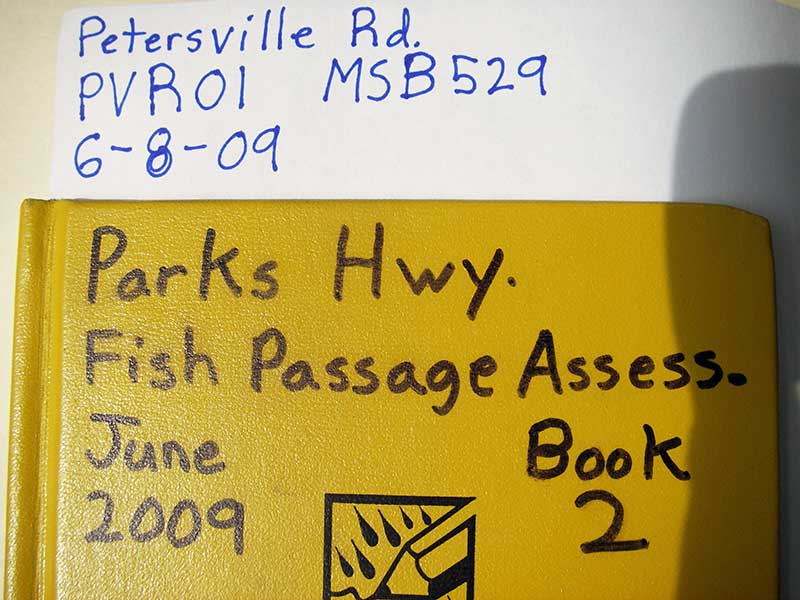 Petersville Rd.
PVR01 MSB529
6-8-09
Parks Hwy.
Fish Passage Assess.
June Book
2009 2